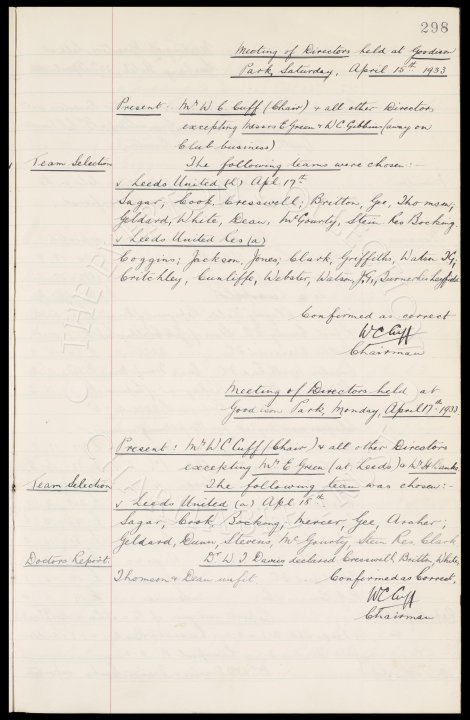 298
Meeting of Directors held at Goodison
Park, Saturday, April 15th 1933
Present: Mr W. C. Cuff (Chair) & all other Directors
excepting Messrs E Green & W C Gibbins (away on
Club business)
Team Selection
The following teams were chosen:-
v Leeds United (h) Apl 17th
Sagar, Cook, Cresswell; Britton, Gee, Thomson;
Geldard, White, Dean, McGourty, Stein Res Bocking
v Leeds United Res (a)
Coggins; Jackson, Jones; Clark, Griffiths, Watson T.G;
Critchley, Cunliffe, Webster, Watson J.G,
Confirmed as correct
W C Cuff
Chairman
Meeting of Directors held at
Goodison Park, Monday, April 17th 1933.
Present: Mr W C Cuff (Chair) & all other Directors
excepting Mr E Green (at Leeds) & Mr H Banks.
Team Selection
The following team was chosen:-
v Leeds United (a) Apl 18th
Sagar, Cook, Bocking; Mercer, Gee, Archer;
Geldard, Dunn, Stevens, McGourty, Stein Res Clark
Doctors Report.
Dr W J Davies declared Cresswell, Britton, White,
Thomson & Dean unfit.
Confirmed as Correct,
W C Cuff
Chairman